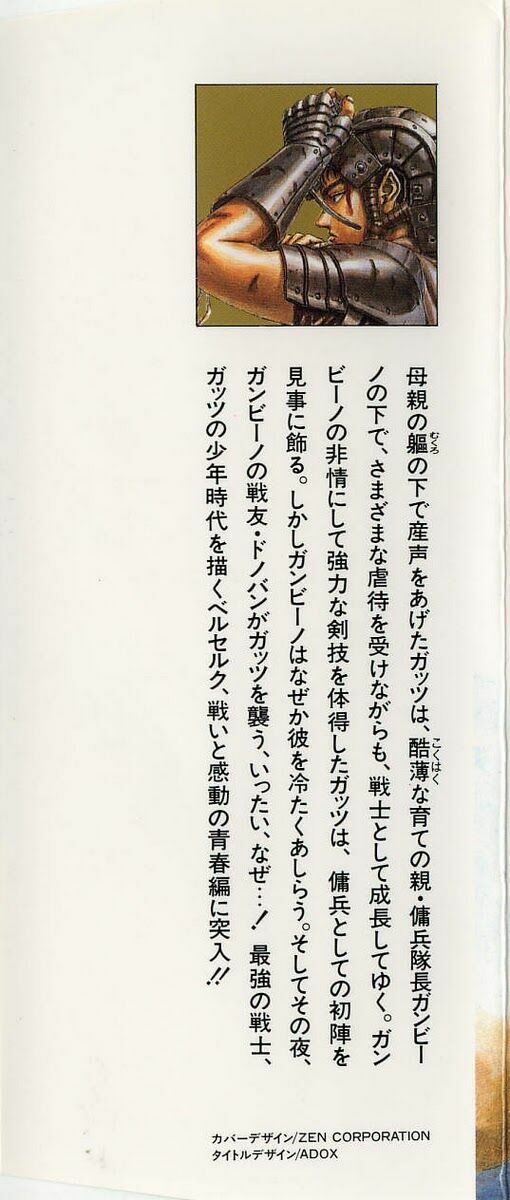 母親の軀の下で産声をあげたガッツは、酷薄な育ての親・傭兵隊長ガンビー
むくろ
こくはく
ノの下で、さまざまな虐待を受けながらも、戦士として成長してゆく。ガン
ビーノの非情にして強力な剣技を体得したガッツは、傭兵としての初陣を
見事に飾る。しかしガンビーノはなぜか彼を冷たくあしらう。そしてその夜、
ガンビーノの戦友・ドノバンがガッツを襲う、いったい、なぜ…！最強の戦士、
ガッツの少年時代を描くベルセルク、戦いと感動の青春編に突入！！
カバーデザイン/ZEN CORPORATION
タイトルデザイン/ADOX